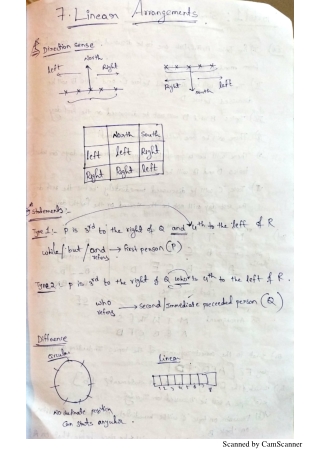 7. Linear Arrangements.
Direction sense
North
left Right
Right left
North
North South
left left Right
Right Right left
Statements :-
Type 1 :- P is 3rd to the right of Q and 4th to the left of R
while / but / and → first person (P)
refers
Type 2 :- P is 3rd to the right of Q who is 4th to the left of R.
who → second / Immediate preceeded person (Q)
refers
Difference
Circular Linear
1 2 3 4 5 6 7 8
No definate position
Can starts anywhere.
Scanned by CamScanner